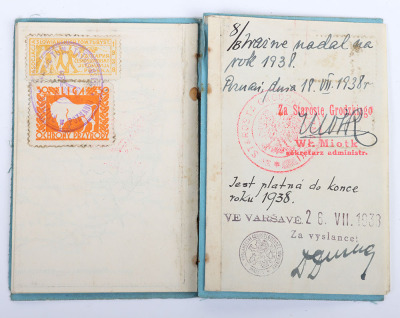 LIGA
OCHRONY PRZYRODY
8/
Ważne nadal na
rok 1938.
Poznań, dnia 18 VII 1938 r
Za Starostę Grodzkiego
Wł. Miotk
sekretarz administr.
Jest platná do konce
roku 1938.
VE VARŠAVĚ, 26. VII. 1938
Za vyslance: